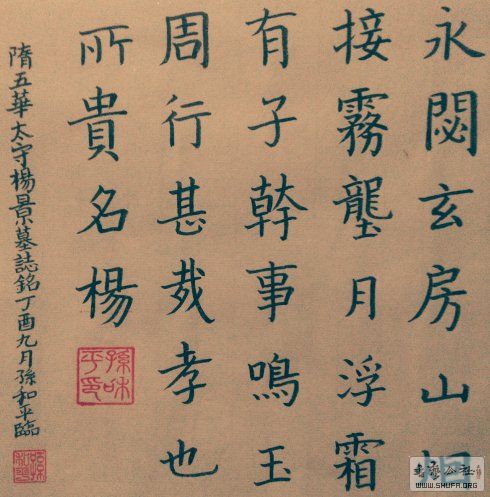 永閟玄房山
接霧壟月浮霜
有子幹事鳴玉
周行甚哉孝也
所貴名楊
孫和平印
隋五華太守楊景墓誌銘丁酉九月孫和平臨
WWW.SHUFA.ORG